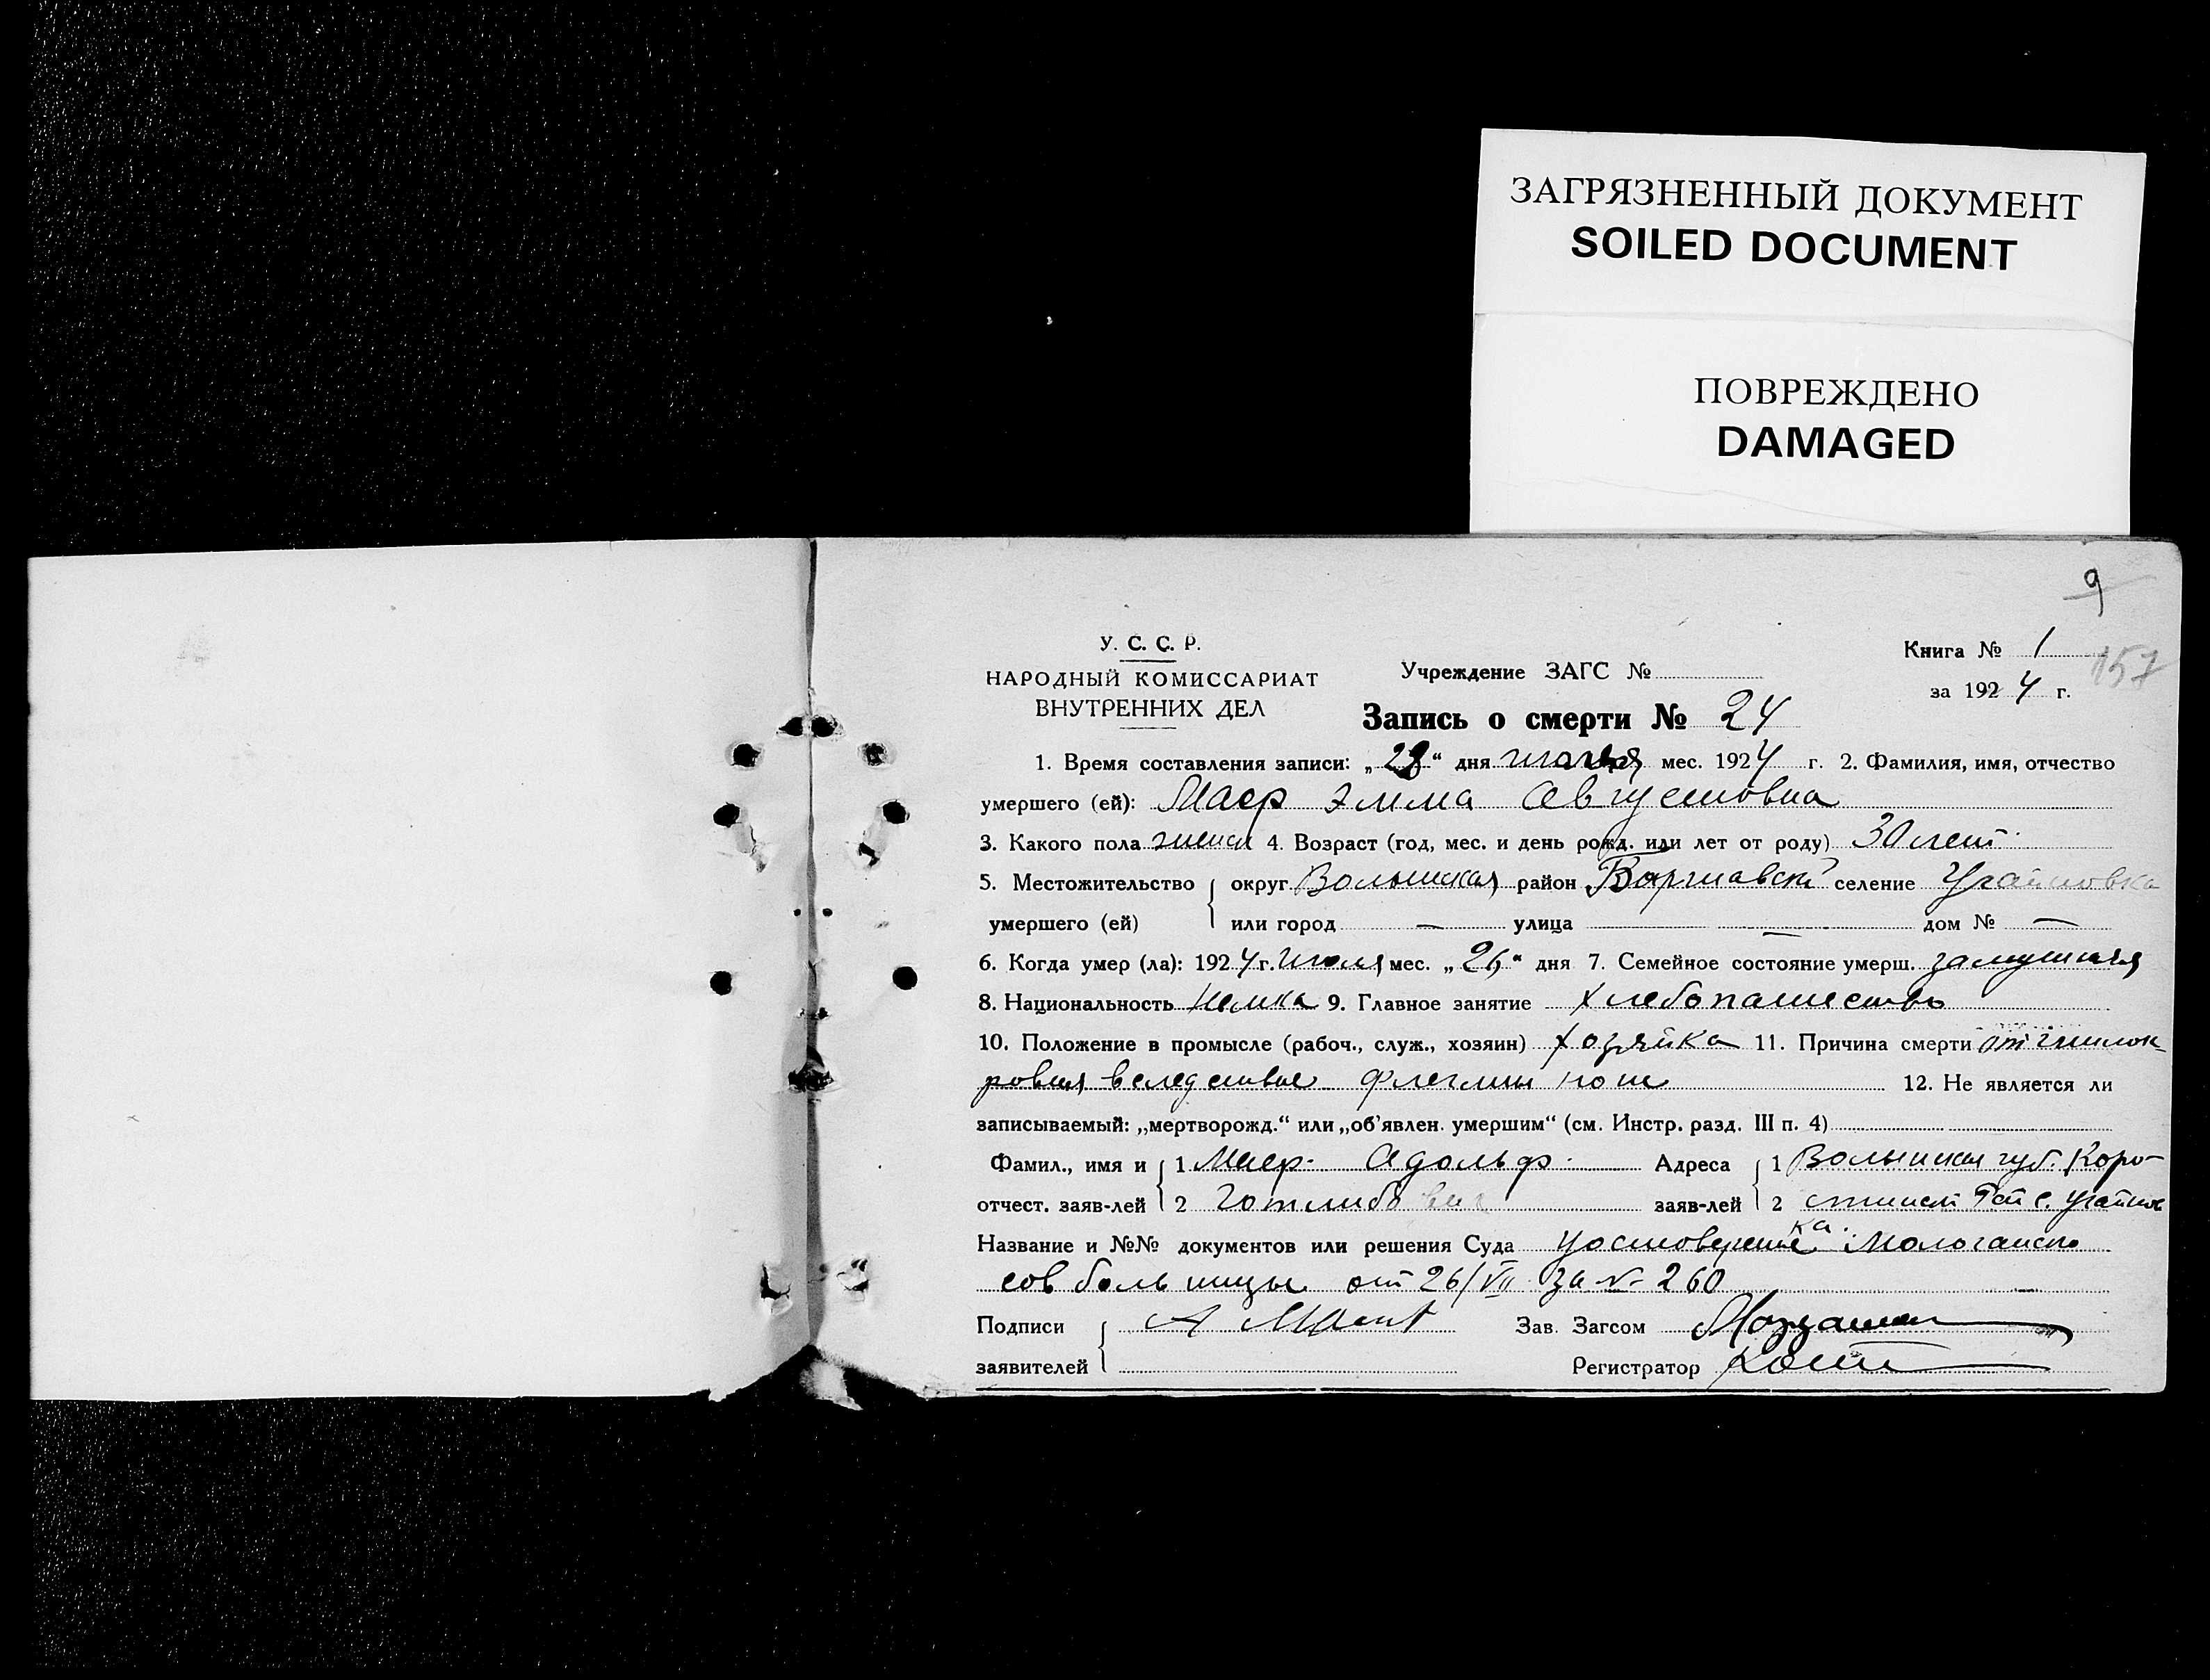 ЗАГРЯЗНЕННЫЙ ДОКУМЕНТ
SOILED DOCUMENT
ПОВРЕЖДЕНО
DAMAGED
9
157
У. С. С. Р.
НАРОДНЫЙ КОМИССАРИАТ
ВНУТРЕННИХ ДЕЛ
Учреждение ЗАГС №
Книга № 1
за 1924 г.
Запись о смерти № 24
1. Время составления записи: „28“ дня июля мес. 1924 г. 2. Фамилия, имя, отчество
умершего (ей): Маер Эмма Августовна
3. Какого пола женск 4. Возраст (год, мес. и день рожд. или лет от роду) 30 лет
5. Местожительство округ Волынская район селение
умершего (ей) или город — улица — дом № —
6. Когда умер (ла): 1924 г. Июля мес. „26“ дня 7. Семейное состояние умерш. замужняя
8. Национальность немка 9. Главное занятие хлебопашество
10. Положение в промысле (рабоч., служ., хозяин) хозяйка 11. Причина смерти от гнилок-
ровия вследствие флегмны 12. Не является ли
записываемый: „мертворожд.“ или „об'явлен. умершим“ (см. Инстр. разд. III п. 4)
Фамил., имя и 1 Маер Адольф Адреса 1 Волынская губ. Коро-
отчест. заяв-лей 2 Готлибович заяв-лей 2 с.
Название и №№ документов или решения Суда
сов больницы от 26/VII за № 260
Подписи А Зав. Загсом
заявителей Регистратор